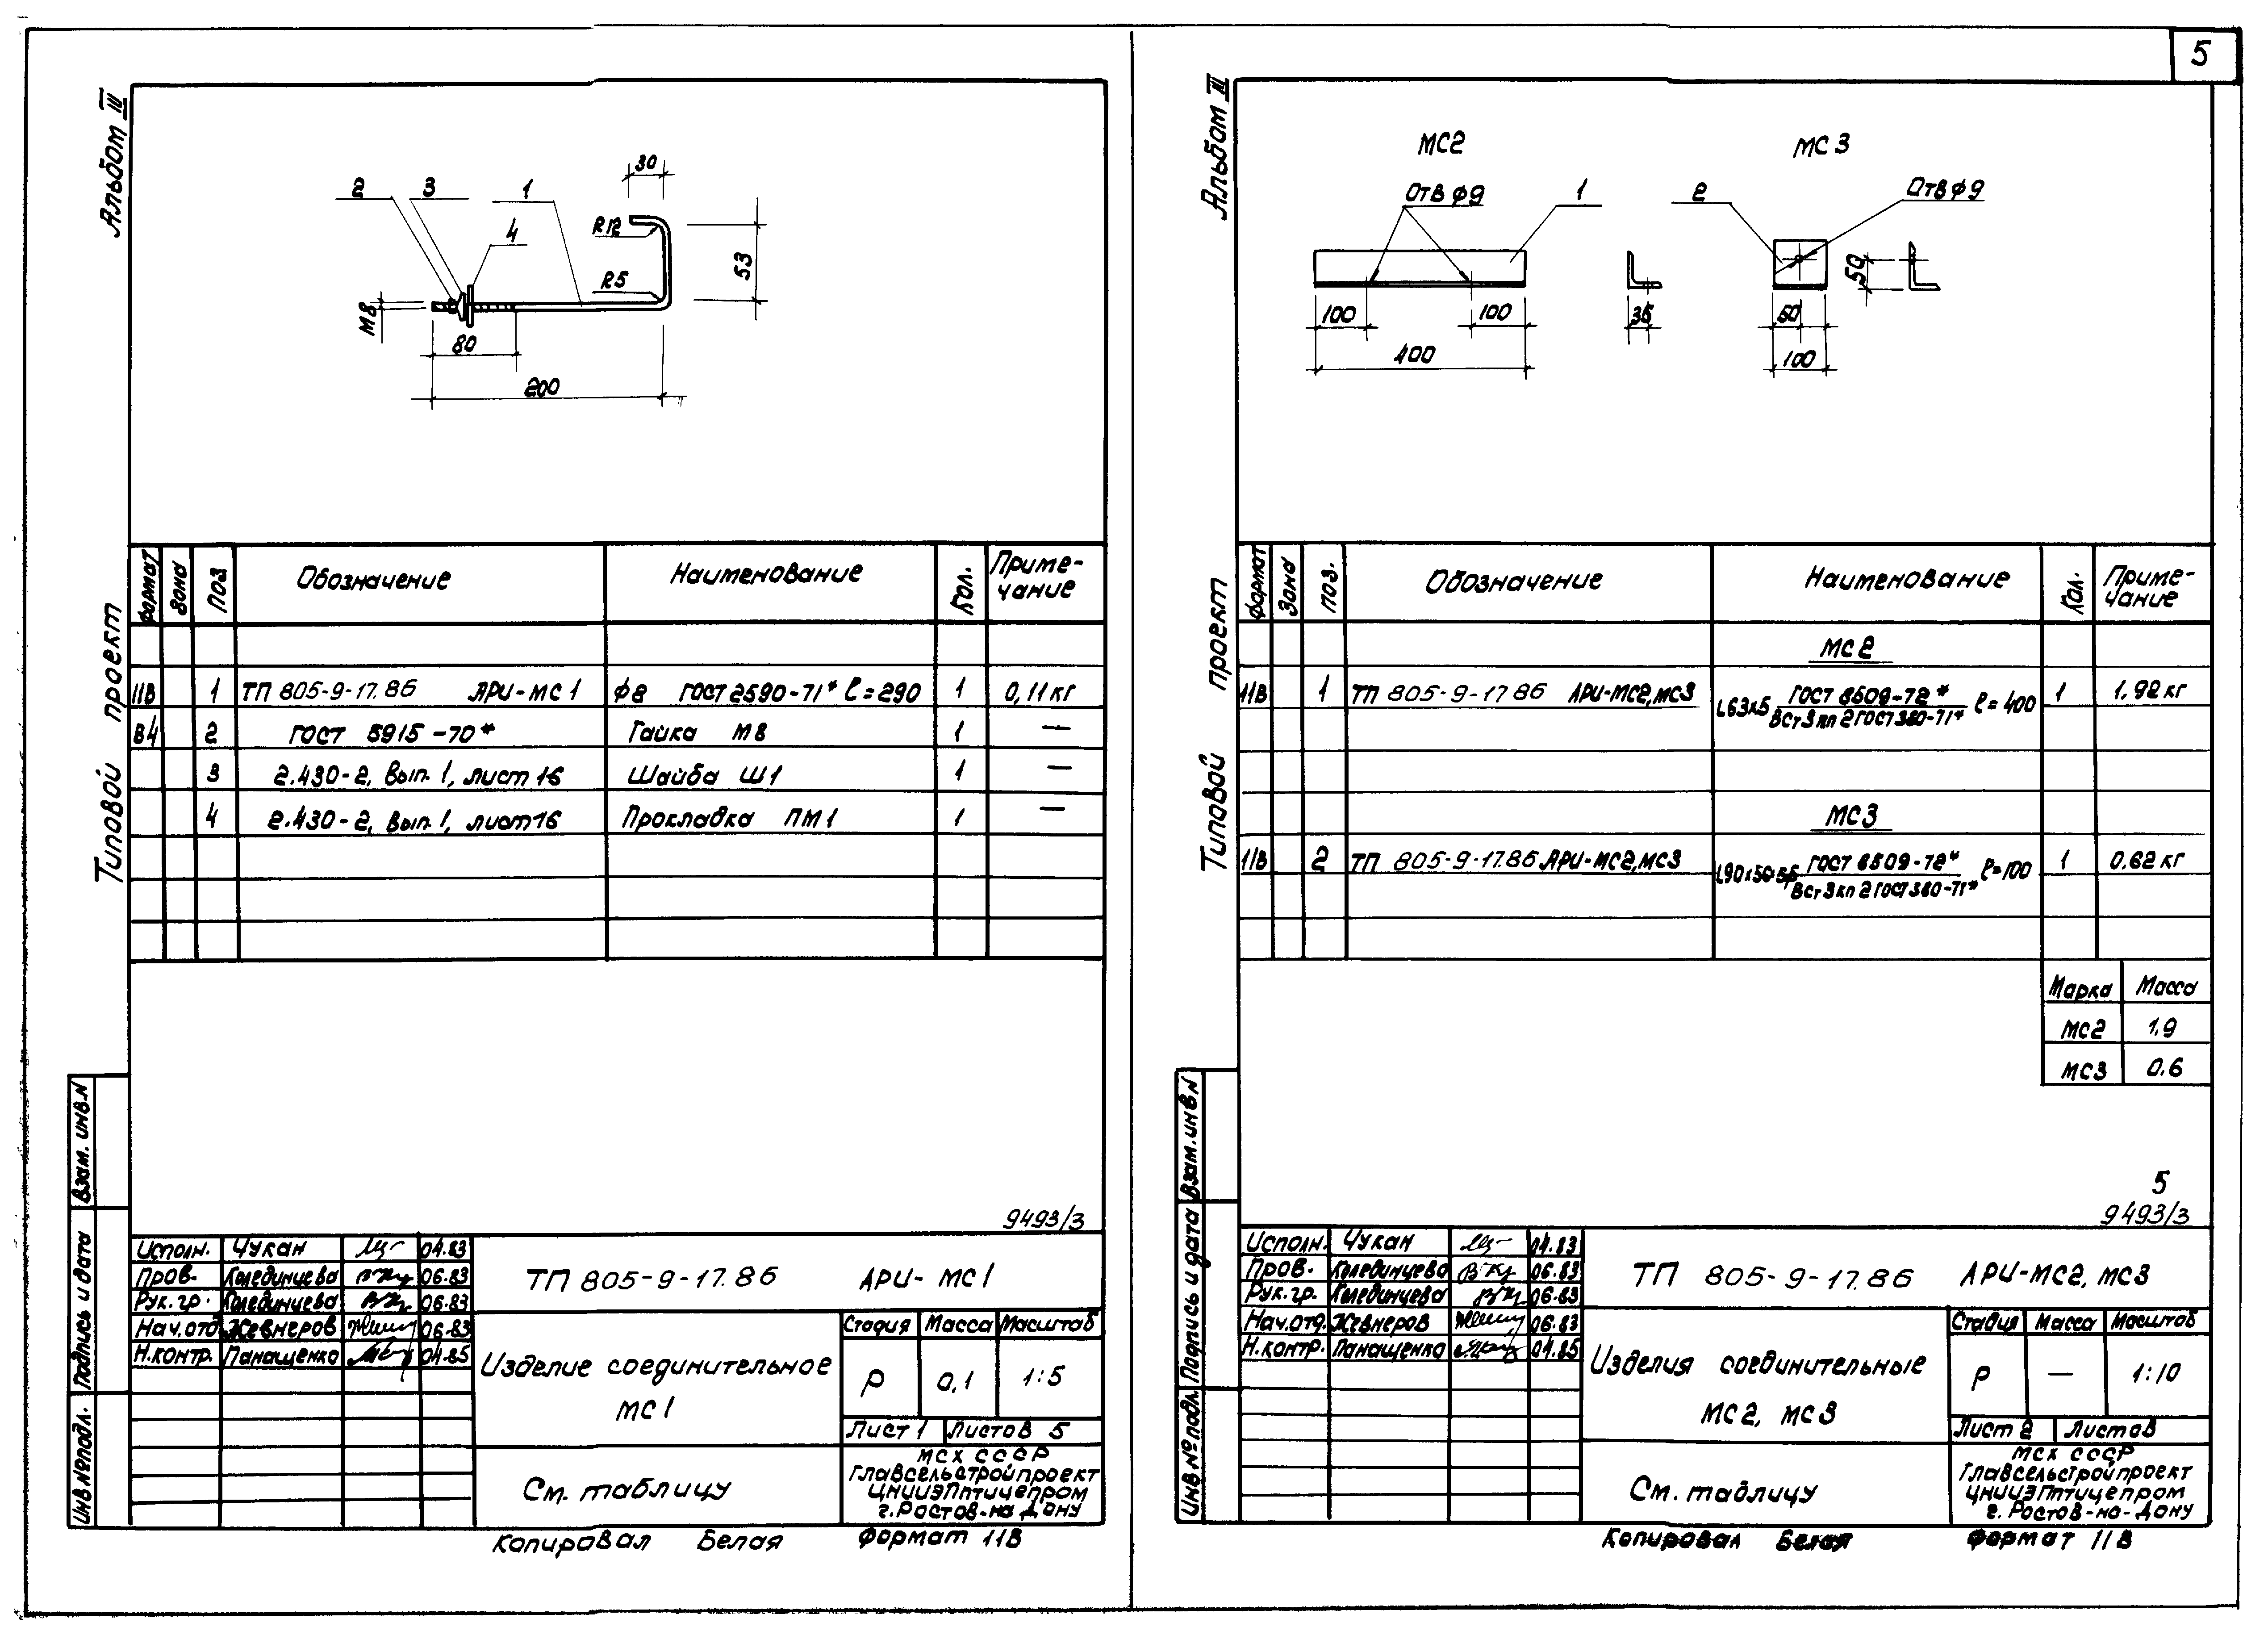 5
Альбом III
Типовой проект
30
2
3
1
4
R12
R5
53
М8
80
200
Формат
Зона
Поз
Обозначение
Наименование
Кол.
Приме-
чание
11В 1 ТП 805-9-17.86 АРИ-МС1 ф8 ГОСТ 2590-71* ℓ=290 1 0,11 кг
В4 2 ГОСТ 5915-70* Гайка М8 1 —
3 2.430-2, Вып. 1, лист 16 Шайба Ш1 1 —
4 2.430-2, Вып. 1, лист 16 Прокладка ПМ1 1 —
9493/3
Взам. инв.N
Подпись и дата
Инв №подл.
Исполн. Чукан 04.83
Пров. Колединцева 06.83
Рук. гр. Колединцева 06.83
Нач.отд. Жевнеров 06.83
Н.контр. Панащенко 04.85
ТП 805-9-17.86 АРИ-МС1
Изделие соединительное
МС1
Стадия Масса Масштаб
Р 0,1 1:5
Лист 1 Листов 5
См. таблицу
МСХ СССР
Главсельстройпроект
ЦНИИЭПптицепром
г. Ростов-на Дону
Копировал Белая Формат 11В
Альбом III
Типовой проект
МС2
Отв ф9
1
100
100
400
35
МС3
2
Отв ф9
50
50
100
Формат
Зона
Поз.
Обозначение
Наименование
Кол.
Приме-
чание
МС2
11В 1 ТП 805-9-17.86 АРИ-МС2,МС3 L63x5 ГОСТ 8509-72* ℓ=400 1 1,92 кг
ВСт3кп2 ГОСТ 380-71*
МС3
11В 2 ТП 805-9-17.86 АРИ-МС2,МС3 ГОСТ 8509-72* ℓ=100 1 0.62 кг
ВСт3кп2 ГОСТ 380-71*
Марка Масса
МС2 1,9
МС3 0.6
5
9493/3
Взам. инв N
Подпись и дата
Инв №подл.
Исполн. Чукан 04.83
Пров. Колединцева 06.83
Рук. гр. Колединцева 06.83
Нач.отд. Жевнеров 06.83
Н.контр. Панащенко 04.85
ТП 805-9-17.86 АРИ-МС2, МС3
Изделия соединительные
МС2, МС3
Стадия Масса Масштаб
Р — 1:10
Лист 2 Листов
См. таблицу
МСХ СССР
Главсельстройпроект
ЦНИИЭПптицепром
г. Ростов-на-Дону
Копировал Белая Формат 11В